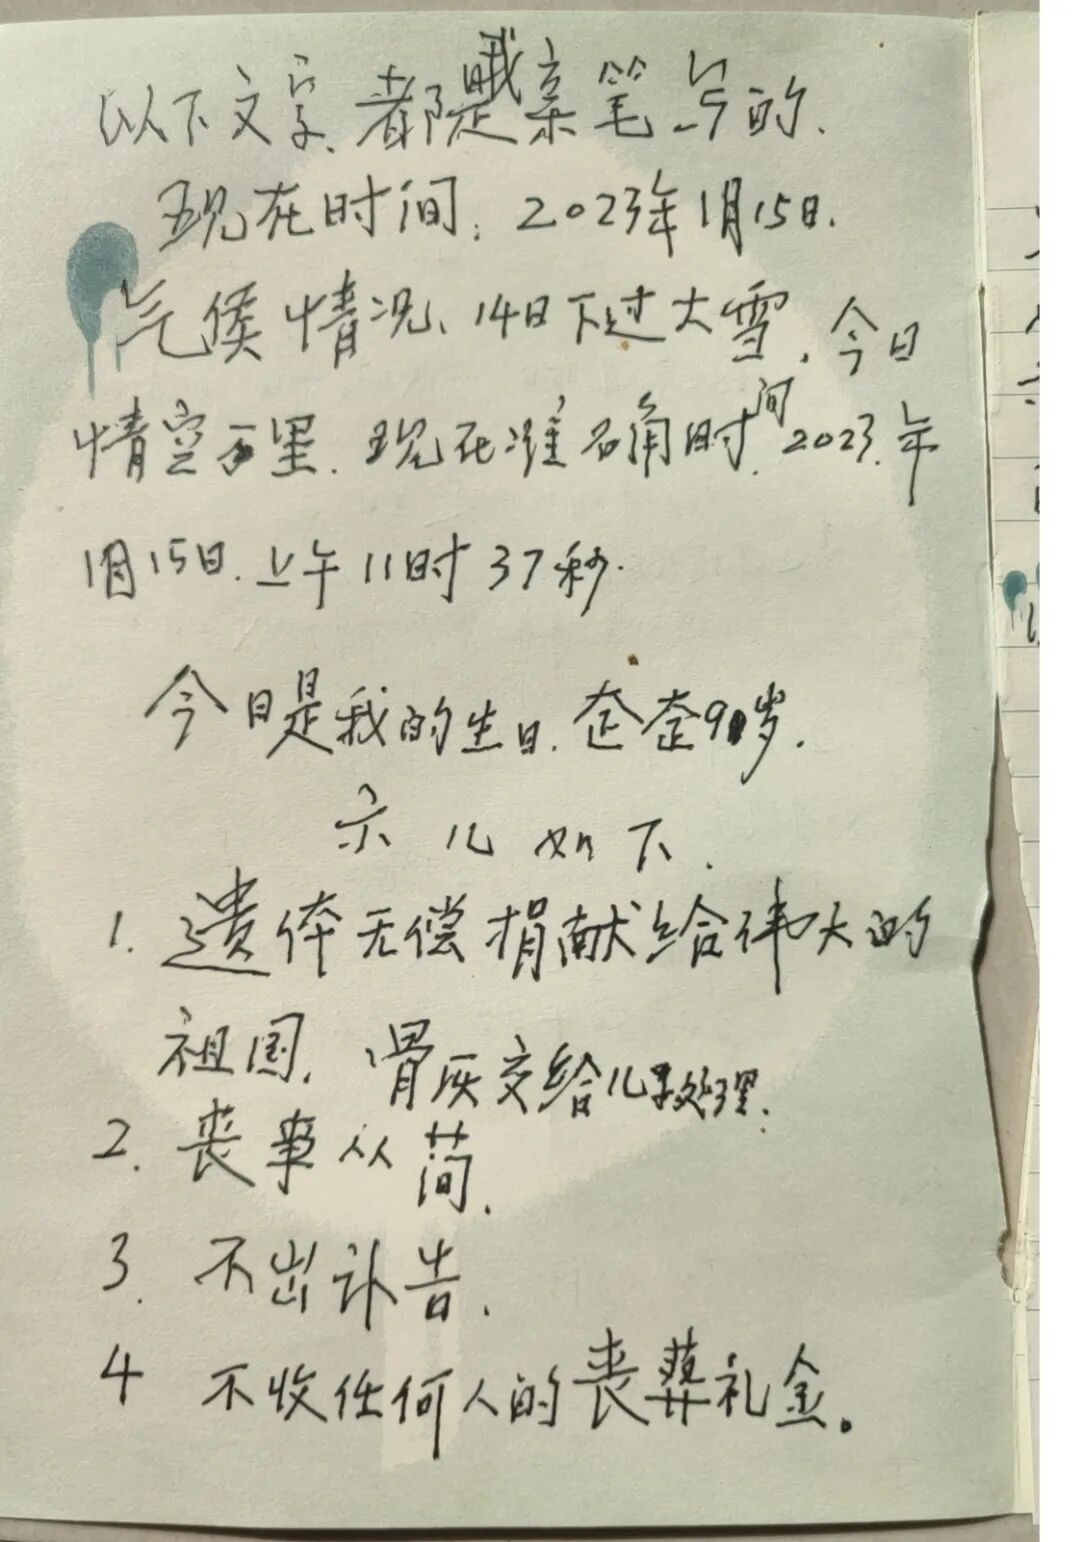 以下文字、都是我亲笔写的.
现在时间:2023年1月15日.
气候情况、14日下过大雪.今日
情空万里.现在准确时间2023.年
1月15日.上午11时37秒.
今日是我的生日.歪歪90岁.
示儿如下.
1.遗体无偿捐献给伟大的
祖国.骨灰交给儿子处理.
2.丧事从简.
3.不出讣告.
4 不收任何人的丧葬礼金。